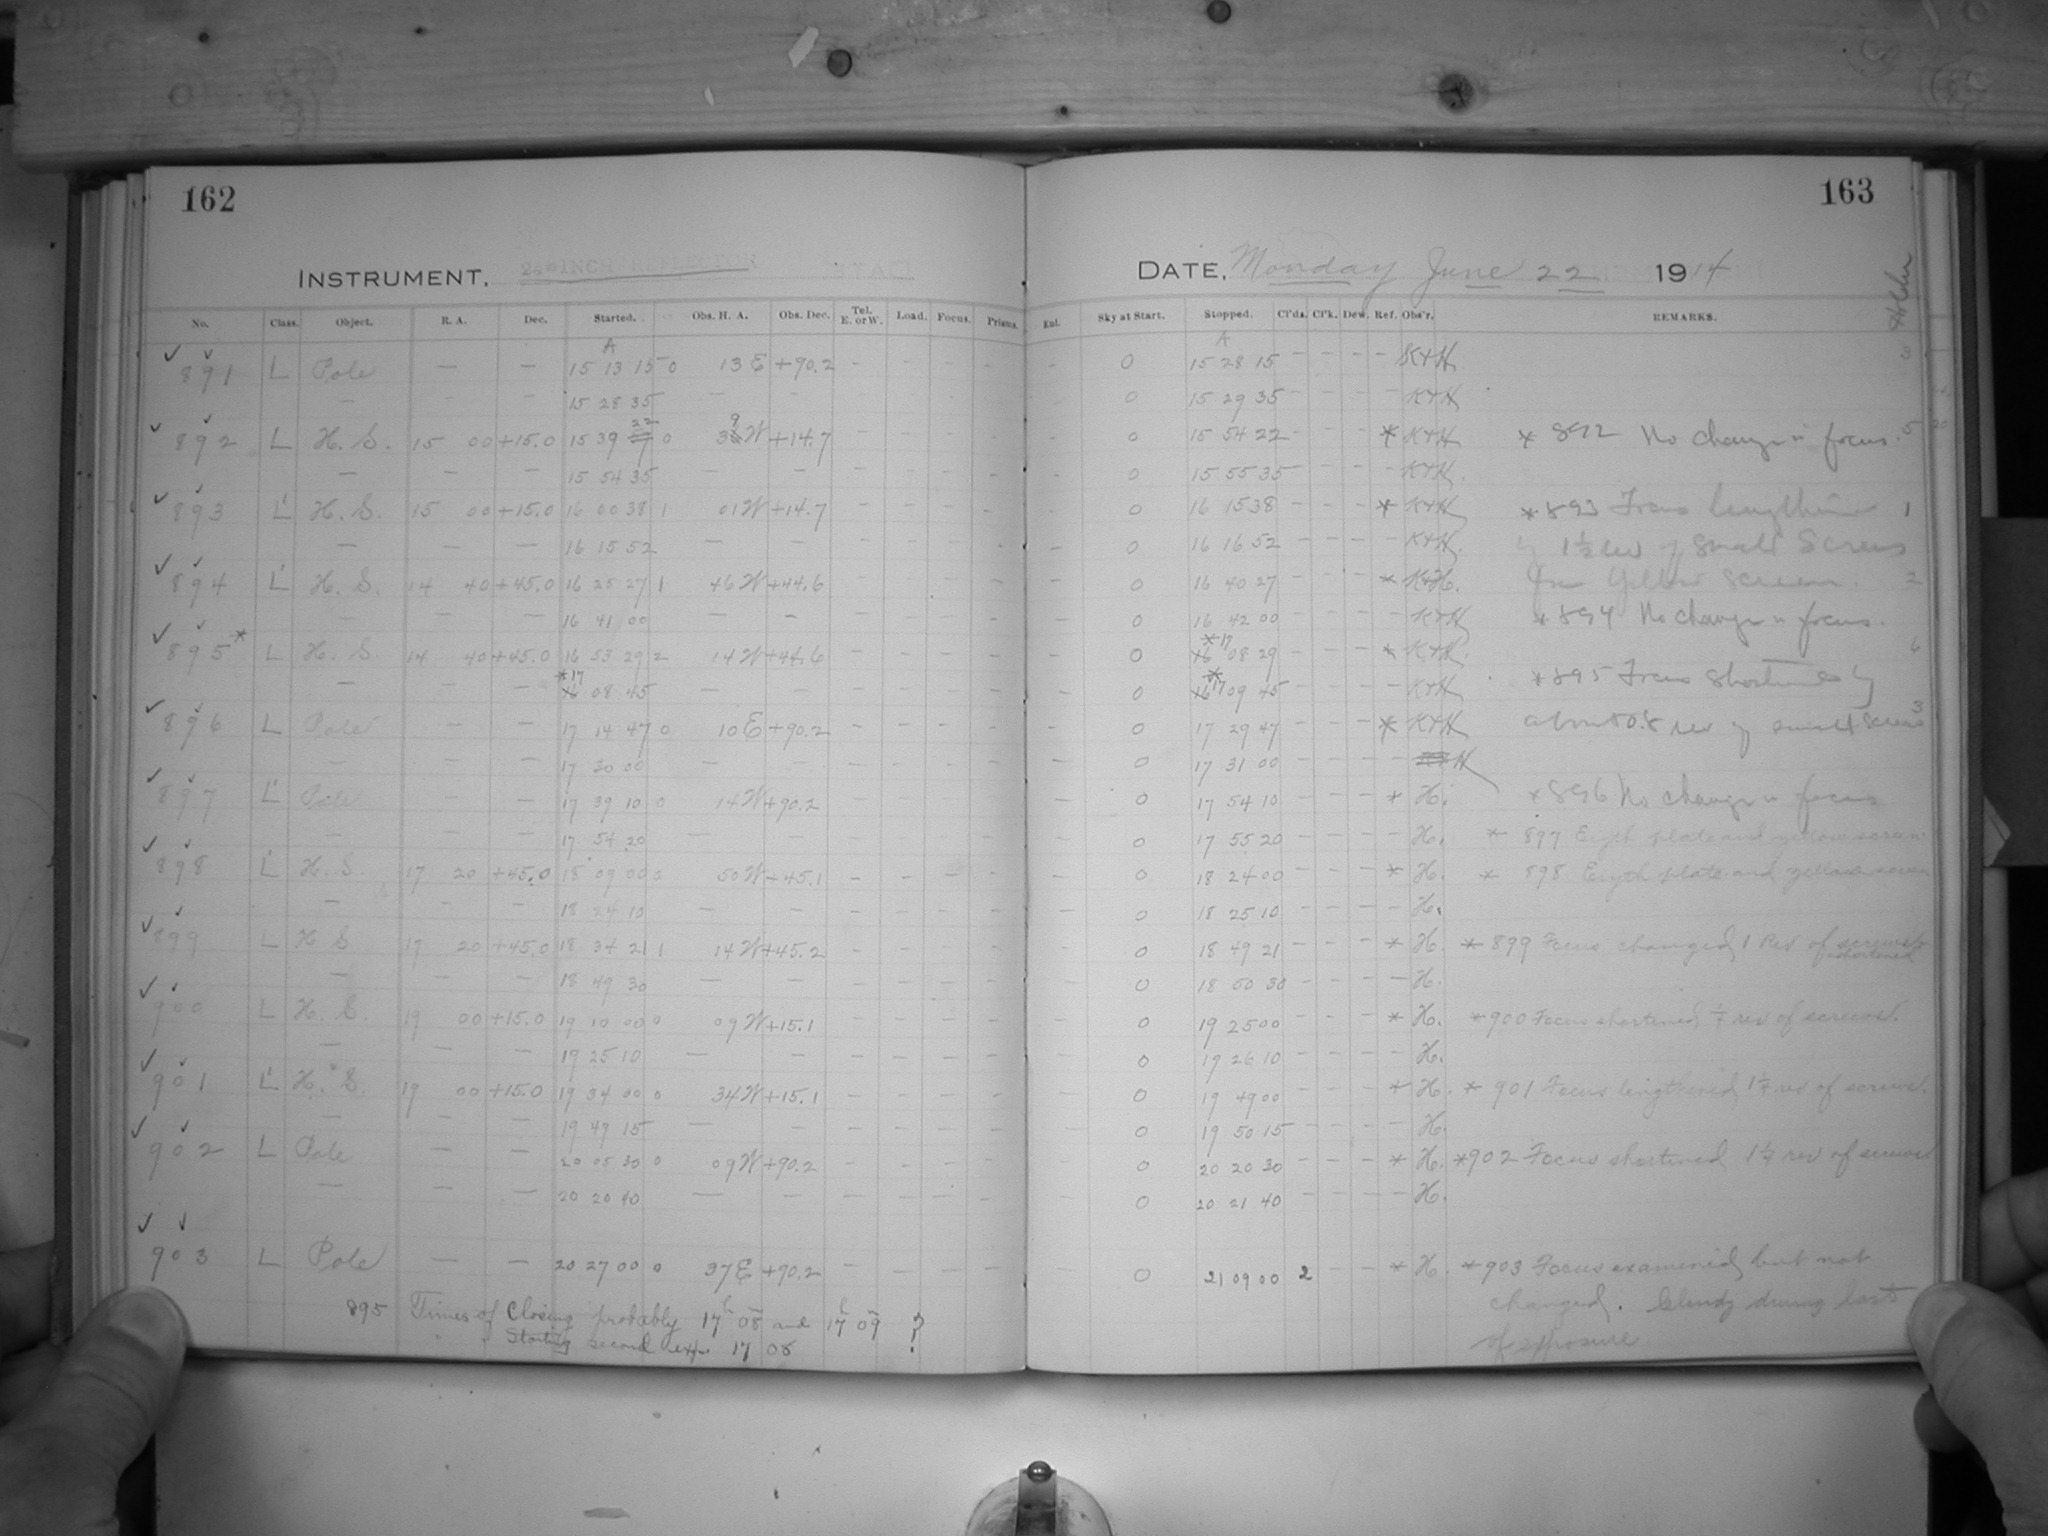 162
163
INSTRUMENT. 24 INCH REFLECTOR
DATE, Monday June 22 1914
No. Class. Object. R. A. Dec. Started. Obs. H. A. Obs. Dec. Tel. E. or W. Load. Focus. Prisms.
Enl. Sky at Start. Stopped. Cl'ds. Cl'k. Dew. Ref. Obs'r. REMARKS. Holder
A A
891 L Pole — — 15 13 15 0 13 E +90.2 - - - - - 0 15 28 15 - - - - K+H. 3
— - - 15 28 35 — - - - - - - 0 15 29 35 - - - - K+H
892 L H. S. 15 00 +15.0 15 39 22 0 39 W +14.7 - - - - - 0 15 54 22 - - - * K+H * 892 No change in focus. 5
— — — 15 54 35 — — - - - - - 0 15 55 35 - - - - K+H.
893 L' H. S. 15 00 +15.0 16 00 38 1 01 W +14.7 - - - - - 0 16 15 38 - - - * K+H * 893 Focus lengthened 1
— — — 16 15 52 — — - - - - - 0 16 16 52 - - - - K+H. by 1½ rev of small Screws
894 L' H. S. 14 40 +45.0 16 25 27 1 46 W +44.6 - - - - - 0 16 40 27 - - - * K+H. for Yellow screen. 2
— - — 16 41 00 — — - - - - - 0 16 42 00 - - - - K+H * 894 No change in focus.
895* L H. S. 14 40 +45.0 16 53 29 2 14 W +44.6 - - - - - 0 *17 08 29 - - - * K+H. 6
— — — *17 08 45 — — - - - - - 0 *17 09 45 - - - - K+H * 895 Focus Shortened by
896 L Pole - - 17 14 47 0 10 E +90.2 - - - - - 0 17 29 47 - - - * K+H about 0.8 rev of small screws 3
— — — 17 30 00 — — - - - - - 0 17 31 00 - - - - H
897 L' Pole — — 17 39 10 0 14 W +90.2 - - - - - 0 17 54 10 - - - * H. * 896 No change in focus
— - — 17 54 20 — - - - - - - 0 17 55 20 - - - - H. * 897 Eryth plate and yellow screen
898 L' H. S. 17 20 +45.0 18 09 00 0 50 W +45.1 - - - - - 0 18 24 00 - - - * H. * 898 Eryth plate and yellow screen
— - — 18 24 10 — - - - - - - 0 18 25 10 - - - - H.
899 L H S. 17 20 +45.0 18 34 21 1 14 W +45.2 - - - - - 0 18 49 21 - - - * H. * 899 Focus changed 1 Rev of screws
shortened
— - — 18 49 30 — — - - - - - 0 18 50 30 - - - - H.
900 L H. S. 19 00 +15.0 19 10 00 0 09 W +15.1 - - - - - 0 19 25 00 - - - * H. * 900 Focus shortened rev of screws.
— — — 19 25 10 — - - - - - - 0 19 26 10 - - - - H.
901 L' H. S. 19 00 +15.0 19 34 00 0 34 W +15.1 - - - - - 0 19 49 00 - - - * H. * 901 Focus lengthened rev of screws.
— — — 19 49 15 — - - - - - - 0 19 50 15 - - - - H.
902 L Pole — — 20 05 30 0 09 W +90.2 - - - - - 0 20 20 30 - - - * H. *902 Focus shortened rev of screws
— — — 20 20 40 — — - - - - - 0 20 21 40 - - - - H.
903 L Pole — — 20 27 00 0 37 E +90.2 - - - - - 0 21 09 00 2 - - * H. *903 Focus examined, but not
changed. Cloudy during last
of exposure
895 Times of Closing probably 17h 08m and 17h 09m ?
" " Starting second exp. 17 08